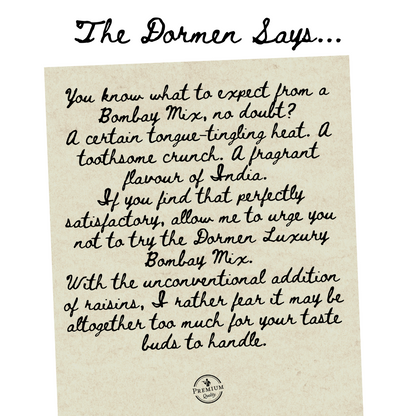 The Dormen Says...
You know what to expect from a
Bombay Mix, no doubt?
A certain tongue-tingling heat. A
toothsome crunch. A fragrant
flavour of India.
If you find that perfectly
satisfactory, allow me to urge you
not to try the Dormen Luxury
Bombay Mix.
With the unconventional addition
of raisins, I rather fear it may be
altogether too much for your taste
buds to handle.
PREMIUM
Quality